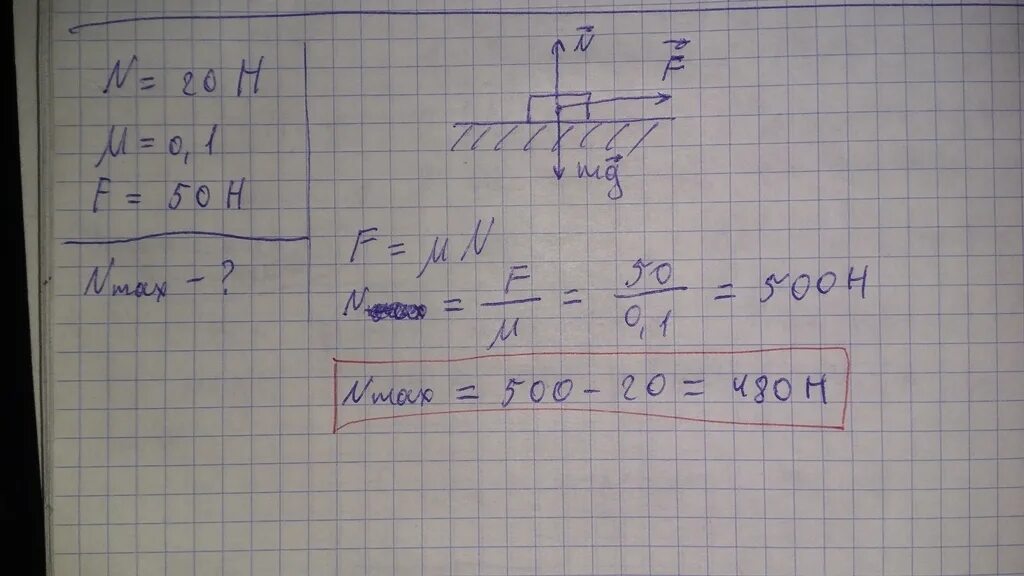 N = 20 H
μ = 0,1
F = 50 H
Nmax - ?
N
F
mg
F = μ N
N = F/μ = 50/0,1 = 500 H
Nmax = 500 - 20 = 480 H